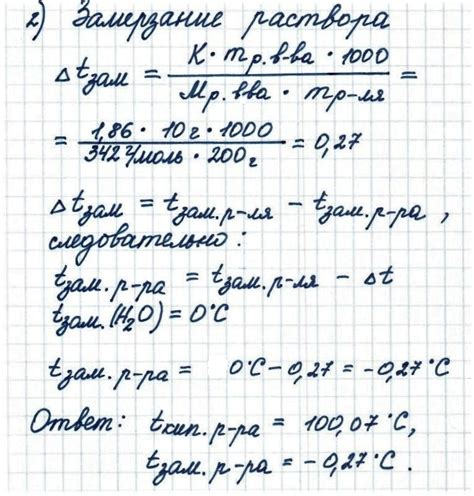 2) Замерзание раствора
Δtзам = K · mр.в-ва · 1000 / Mр.вва · mр-ля =
= 1,86 · 10г · 1000 / 342 г/моль · 200г = 0,27
Δtзам = tзам.р-ля − tзам.р-ра ,
следовательно:
tзам.р-ра = tзам.р-ля − Δt
tзам.(H₂O) = 0°C
tзам.р-ра = 0°C − 0,27 = −0,27°C
Ответ: tкип.р-ра = 100,07°C,
tзам.р-ра = −0,27°C.